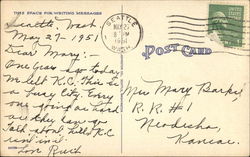 THIS SPACE FOR WRITING MESSAGES
Seattle, Wash.
May 27 - 1951
Dear Mary:
One year ago today
we left K.C. this is a
busy City. Every
one going as fast
as they can go
Talk about hills K.C
isn't in it.
SEATTLE
MAY 27
8 PM
1951
WASH
POST CARD
Miss Mary Barker
R.R. #1
Neodesha,
Kansas.